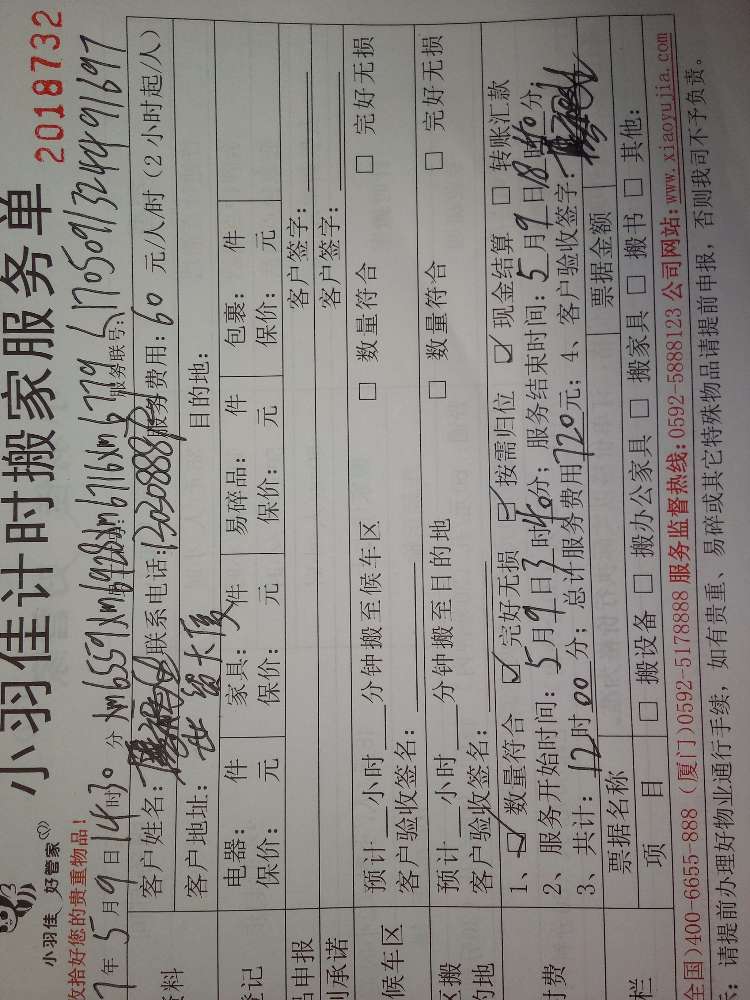 小羽佳计时搬家服务单
2018732
小羽佳 好管家
收拾好您的贵重物品!
7年5月9日14时30分 xm6559 xm6928 xm6716 xm6779 服务联号: L1705091324491697
客户姓名: 联系电话: 服务费用: 60 元/人/时 (2小时起/人)
客户地址: 大厦 目的地:
电器: 件 家具: 件 易碎品: 件 包裹: 件
保价: 元 保价: 元 保价: 元 保价: 元
登记
品申报 客户签字:
承诺 客户签字:
候车区 预计 小时 分钟搬至候车区 □ 数量符合 □ 完好无损
客户验收签名:
区搬 预计 小时 分钟搬至目的地 □ 数量符合 □ 完好无损
的地 客户验收签名:
1、☑ 数量符合 ☑ 完好无损 ☑ 按需归位 ☑ 现金结算 □ 转账汇款
付费 2、服务开始时间: 5月9日3时40分; 服务结束时间: 5月9日18时40分;
3、共计: 12时00分; 总计服务费用720元; 4、客户验收签字:
票据名称 票据金额
栏 项 目 □ 搬设备 □ 搬办公家具 □ 搬家具 □ 搬书 □ 其他:
全国)400-6655-888 (厦门)0592-5178888 服务监督热线:0592-5888123 公司网站:www.xiaoyujia.com
请提前办理好物业通行手续, 如有贵重、易碎或其它特殊物品请提前申报, 否则我司不予负责。